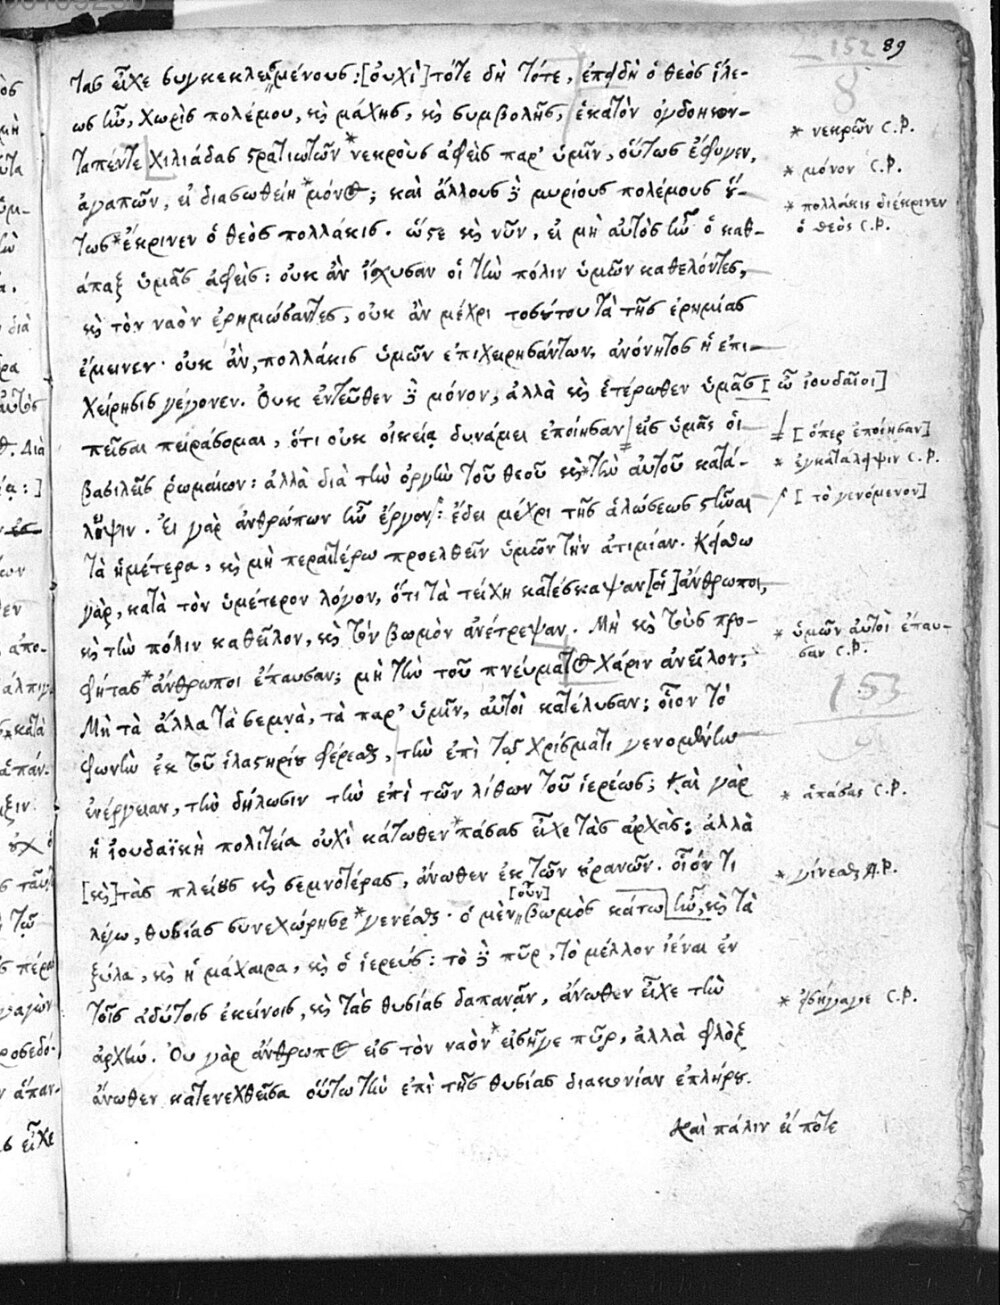 89
152
8
τας εἶχε συγκεκλεισμένους; [οὐχὶ] τότε δὴ τότε, ἐπειδὴ ὁ θεὸς ἵλε-
ως ἦν, χωρὶς πολέμου, καὶ μάχης, καὶ συμβολῆς, ἑκατὸν ὀγδοηκον-
ταπέντε χιλιάδας στρατιωτῶν *νεκροὺς ἀφεὶς παρ' ὑμῖν, οὕτως ἔφυγεν,
* νεκρῶν C.P.
ἀγαπῶν, εἰ διασωθείη *μόνος; καὶ ἄλλους δὲ μυρίους πολέμους οὕ-
* μόνον C.P.
τως *ἔκρινεν ὁ θεὸς πολλάκις. ὥστε καὶ νῦν, εἰ μὴ αὐτὸς ἦν ὁ καθ-
* πολλάκις διέκρινεν
ὁ θεὸς C.P.
άπαξ ὑμᾶς ἀφεὶς: οὐκ ἂν ἴσχυσαν οἱ τὴν πόλιν ὑμῶν καθελόντες,
καὶ τὸν ναὸν ἐρημώσαντες, οὐκ ἂν μέχρι τοσούτου τὰ τῆς ἐρημίας
ἔμεινεν· οὐκ ἂν, πολλάκις ὑμῶν ἐπιχειρησάντων, ἀνόνητος ἡ ἐπι-
χείρησις γέγονεν. Οὐκ ἐντεῦθεν δὲ μόνον, ἀλλὰ καὶ ἑτέρωθεν ὑμᾶς [ὦ ἰουδαῖοι]
πεῖσαι πειράσομαι, ὅτι οὐκ οἰκείᾳ δυνάμει ἐποίησαν εἰς ὑμᾶς οἱ
[ὅπερ ἐποίησαν]
βασιλεῖς ῥωμαίων: ἀλλὰ διὰ τὴν ὀργὴν τοῦ θεοῦ καὶ *τὴν αὐτοῦ κατά-
* ἐγκατάληψιν C.P.
ληψιν. Εἰ γὰρ ἀνθρώπων ἦν ἔργον: ἔδει μέχρι τῆς ἁλώσεως στῆναι
[τὸ γενόμενον]
τὰ ἡμέτερα, καὶ μὴ περαιτέρω προελθεῖν ὑμῶν τὴν ἀτιμίαν. Κείσθω
γὰρ, κατὰ τὸν ὑμέτερον λόγον, ὅτι τὰ τείχη κατέσκαψαν [οἱ] ἄνθρωποι,
καὶ τὴν πόλιν καθεῖλον, καὶ τὸν βωμὸν ἀνέτρεψαν. Μὴ καὶ τοὺς προ-
φήτας *ἄνθρωποι ἔπαυσαν; μὴ τὴν τοῦ πνεύματος χάριν ἀνεῖλον;
* ὑμῶν αὐτοὶ ἔπαυ-
σαν C.P.
153
Μὴ τὰ ἄλλα τὰ σεμνὰ, τὰ παρ' ὑμῖν, αὐτοὶ κατέλυσαν; οἷον τὸ
φωνὴν ἐκ τοῦ ἱλαστηρίου φέρεσθαι, τὴν ἐπὶ τῷ χρίσματι γενομένην
ἐνέργειαν, τὴν δήλωσιν τὴν ἐπὶ τῶν λίθων τοῦ ἱερέως; Καὶ γὰρ
ἡ ἰουδαϊκὴ πολιτεία οὐχὶ κάτωθεν *πάσας εἶχε τὰς ἀρχάς: ἀλλὰ
* ἁπάσας C.P.
[καὶ] τὰς πλείους καὶ σεμνοτέρας, ἄνωθεν ἐκ τῶν οὐρανῶν. οἷόν τι
λέγω, θυσίας συνεχώρησε *γενέσθαι. ὁ μὲν [οὖν] βωμὸς κάτω ἦν, καὶ τὰ
* γίνεσθαι A.P.
ξύλα, καὶ ἡ μάχαιρα, καὶ ὁ ἱερεύς: τὸ δὲ πῦρ, τὸ μέλλον ἰέναι ἐν
τοῖς ἀδύτοις ἐκείνοις, καὶ τὰς θυσίας δαπανᾷν, ἄνωθεν εἶχε τὴν
ἀρχήν. Οὐ γὰρ ἄνθρωπος εἰς τὸν ναὸν *εἰσῆγε πῦρ, ἀλλὰ φλὸξ
* εἰσήγαγε C.P.
ἄνωθεν κατενεχθεῖσα οὕτω τὴν ἐπὶ τῆς θυσίας διακονίαν ἐπλήρου.
Καὶ πάλιν εἴ ποτε